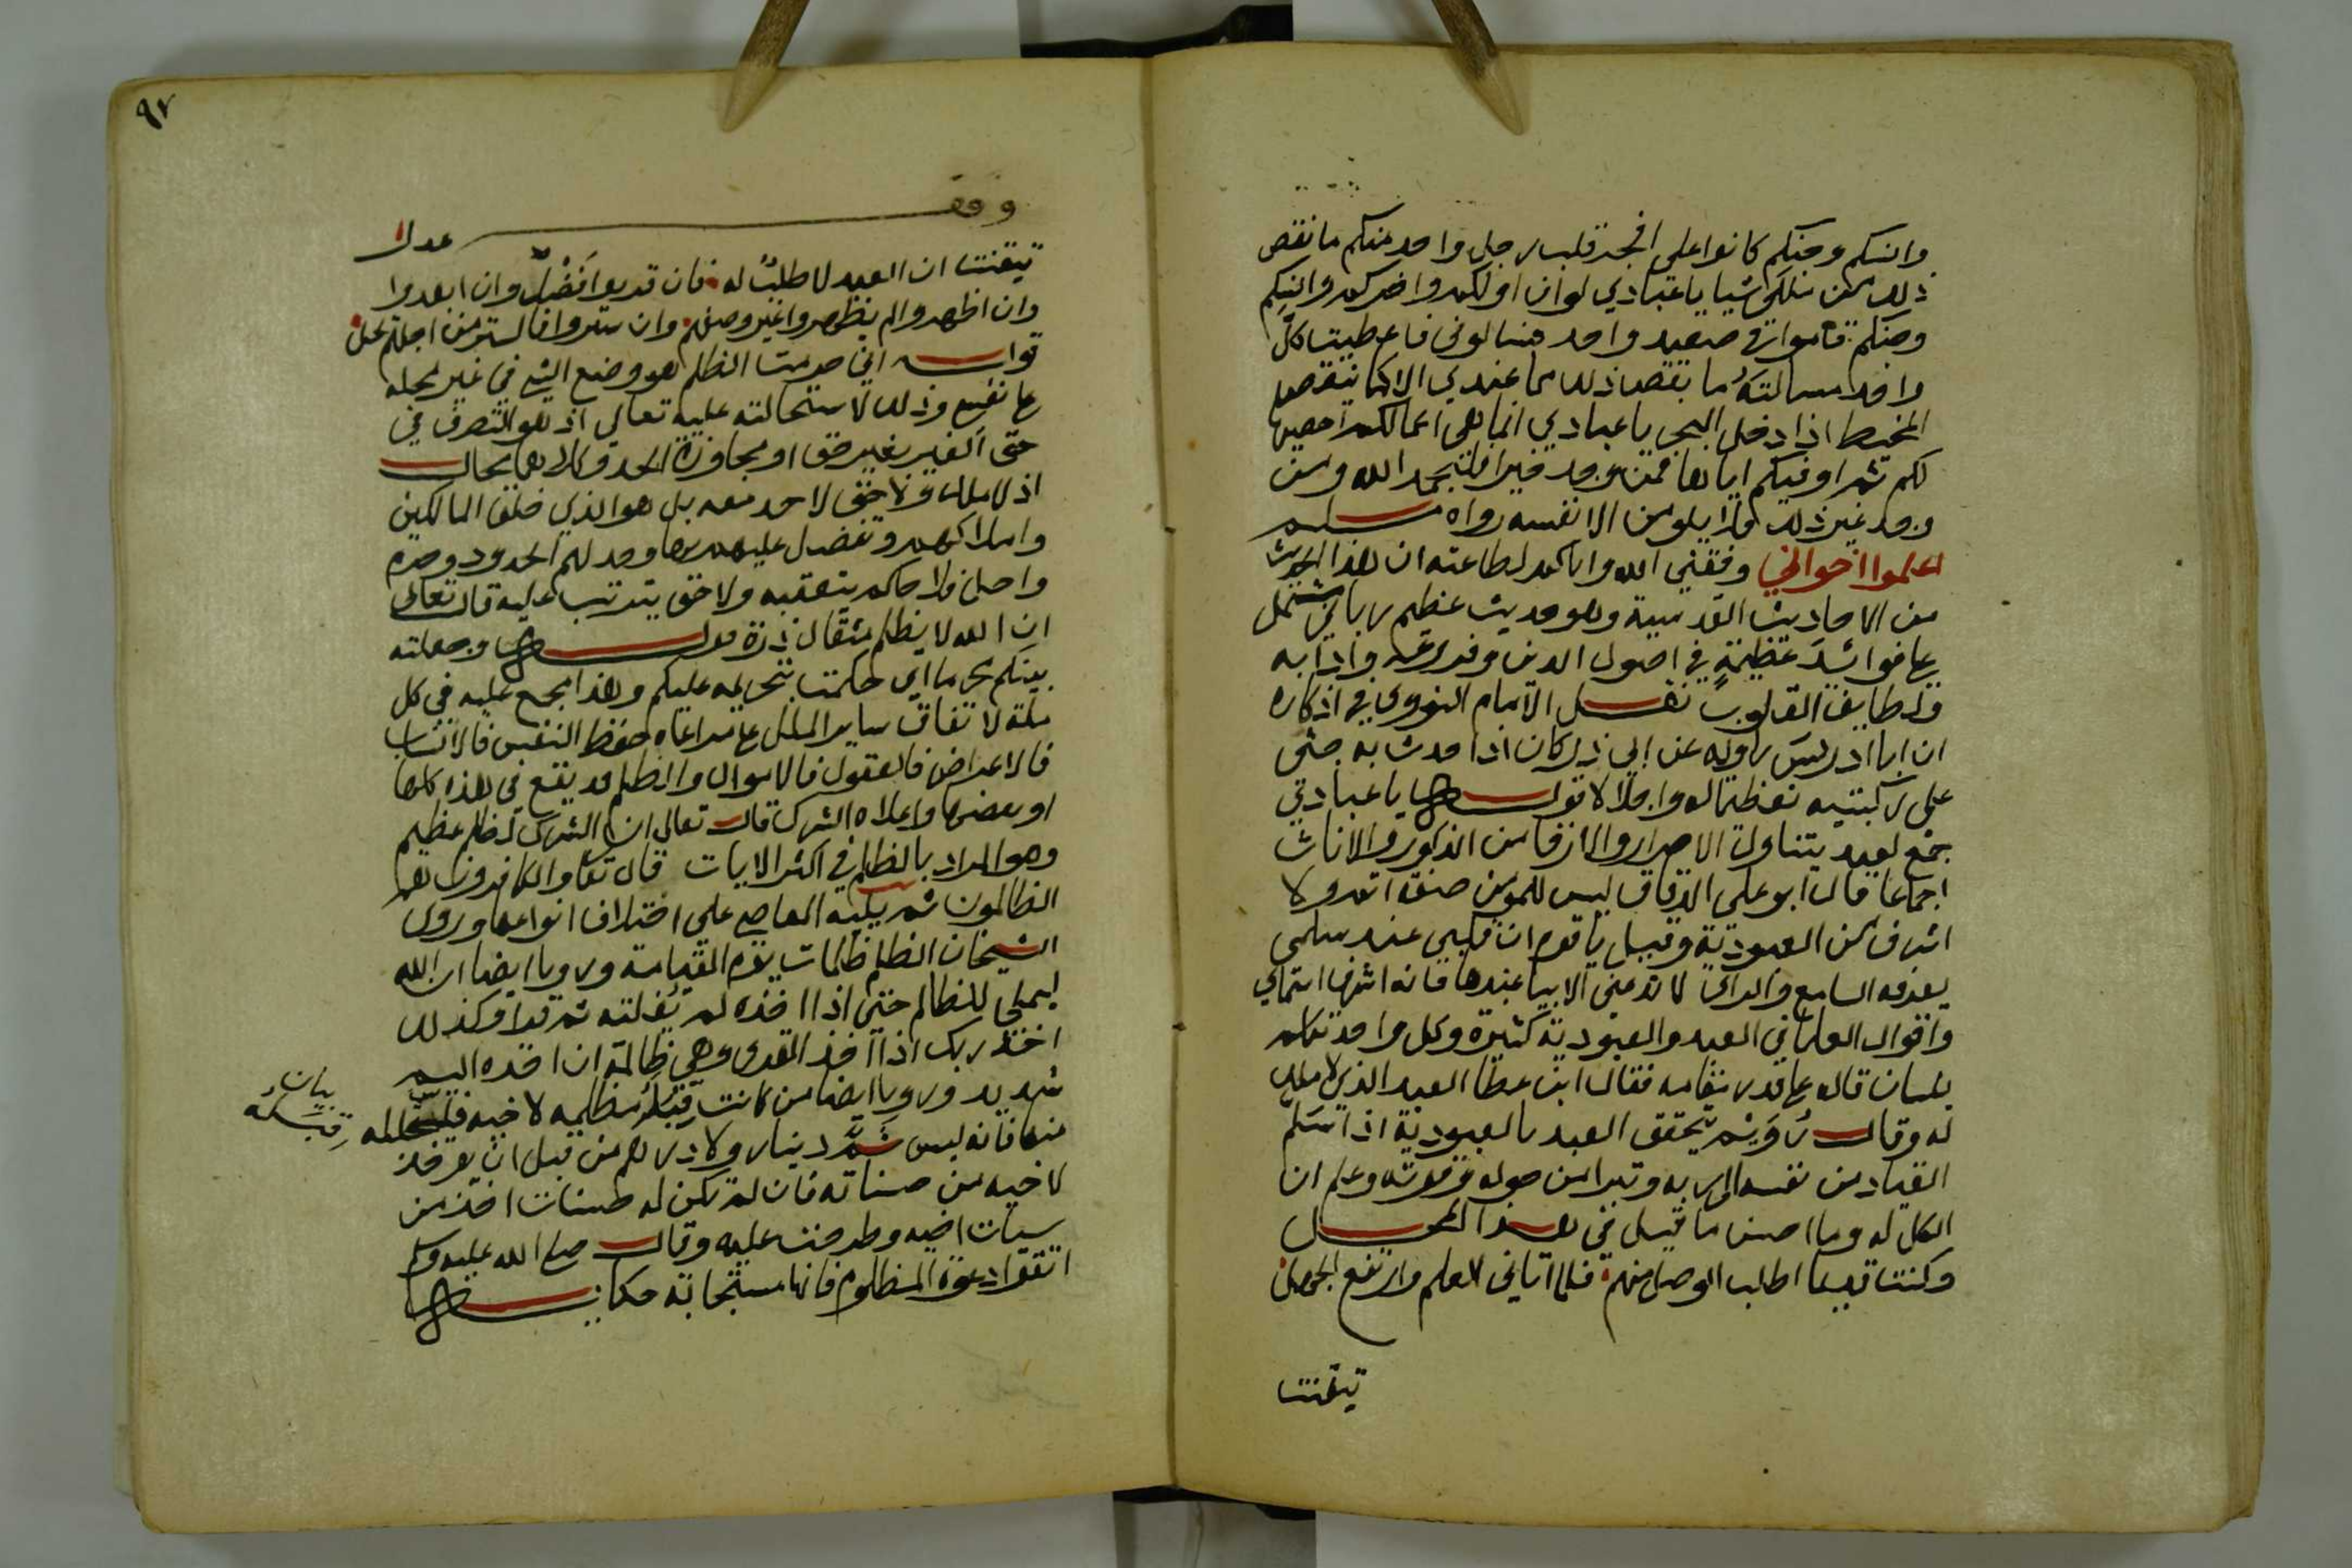 وانسكم وجنكم كانوا على افجر قلب رجل واحد منكم ما نقص
ذلك من ملكي شيا يا عبادي لو ان اولكم واخركم وانسكم
وجنكم قاموا في صعيد واحد فسالوني فاعطيت كل
واحد مسالته ما نقص ذلك مما عندي الا كما ينقص
المخيط اذا ادخل البحر يا عبادي انما هي اعمالكم احصيها
لكم ثم اوفيكم اياها فمن وجد خيرا فليحمد الله ومن
وجد غير ذلك فلا يلومن الا نفسه رواه مسلم
اعلموا اخواني وفقني الله واياكم لطاعته ان هذا الحديث
من الاحاديث القدسية وهو حديث عظيم رباني يشتمل
على فوائد عظيمة في اصول الدين وفروعه وادابه
ولطايف القلوب نقل الامام النووي في اذكاره
ان ابا ادريس راويه عن ابي ذر كان اذا حدث به جثى
على ركبتيه تعظيما له واجلالا قوله يا عبادي
جمع لعبد يتناول الاحرار والارقا من الذكور والاناث
اجماعا قال ابو علي الدقاق ليس للمؤمن صفة اتم ولا
اشرف من العبودية وقيل يا قوم ان قلبي عند سلمى
يعرفه السامع والراي لا تدعني الا بيا عبدها فانه اشرف اسماي
واقوال العلما في العبد والعبودية كثيرة وكل واحد تكلم
بلسان قاله على قدر مقامه فقال ابن عطا العبد الذي لا ملك
له وقال رويم يتحقق العبد بالعبودية اذا سلم
القياد من نفسه الى ربه وتبرا من حوله وقوته وعلم ان
الكل له وما احسن ما قيل في هذا المحل
وكنت قديما اطلب الوصل منهم فلما اتاني العلم وارتفع الجهل
تيقنت
٩٢
وقف
تيقنت ان العبد لا طلب له فان قربوا فضل وان ابعدوا عدل
وان اظهروا لم يظهروا غير وصفهم وان ستروا فالستر من اجلهم يحلو
قوله اني حرمت الظلم هو وضع الشي في غير محله
على نفسي وذلك لاستحالته عليه تعالى اذ هو التصرف في
حق الغير بغير حق او مجاوزة الحد وكلاهما محال
اذ لا ملك ولا حق لاحد معه بل هو الذي خلق المالكين
واملاكهم وتفضل عليهم بها وحد لهم الحدود وحرم
واحل فلا حاكم يتعقبه ولا حق يترتب عليه قال تعالى
ان الله لا يظلم مثقال ذرة قوله وجعلته
بينكم محرما اي حكمت بتحريمه عليكم وهذا مجمع عليه في كل
ملة لاتفاق ساير الملل على مراعاة حفظ النفس فالانساب
فالاعراض فالعقول فالاموال والظلم قد يقع في هذه كلها
او بعضها واعلاه الشرك قال تعالى ان الشرك لظلم عظيم
وهو المراد بالظلم في اكثر الايات قال تعالى والكافرون هم
الظالمون ثم يليه المعاصي على اختلاف انواعها وروى
الشيخان الظلم ظلمات يوم القيامة ورويا ايضا ان الله
ليملي للظالم حتى اذا اخذه لم يفلته ثم قرا وكذلك
اخذ ربك اذا اخذ القرى وهي ظالمة ان اخذه اليم
شديد ورويا ايضا من كانت قبله مظلمة لاخيه فليتحلله
منها فانه ليس ثم دينار ولا درهم من قبل ان يوخذ
لاخيه من حسناته فان لم تكن له حسنات اخذ من
سيات اخيه وطرحت عليه وقال صلى الله عليه وسلم
اتقوا دعوة المظلوم فانها مستجابة حكاية
بيان